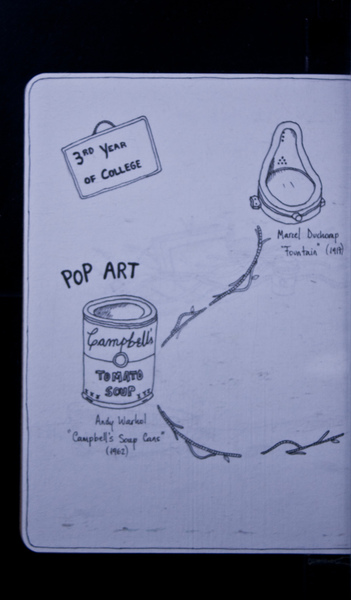 3RD YEAR
OF COLLEGE
Marcel Duchamp
"Fountain" (1917)
POP ART
Campbell's
TOMATO
SOUP
Andy Warhol
"Campbell's Soup Cans"
(1962)